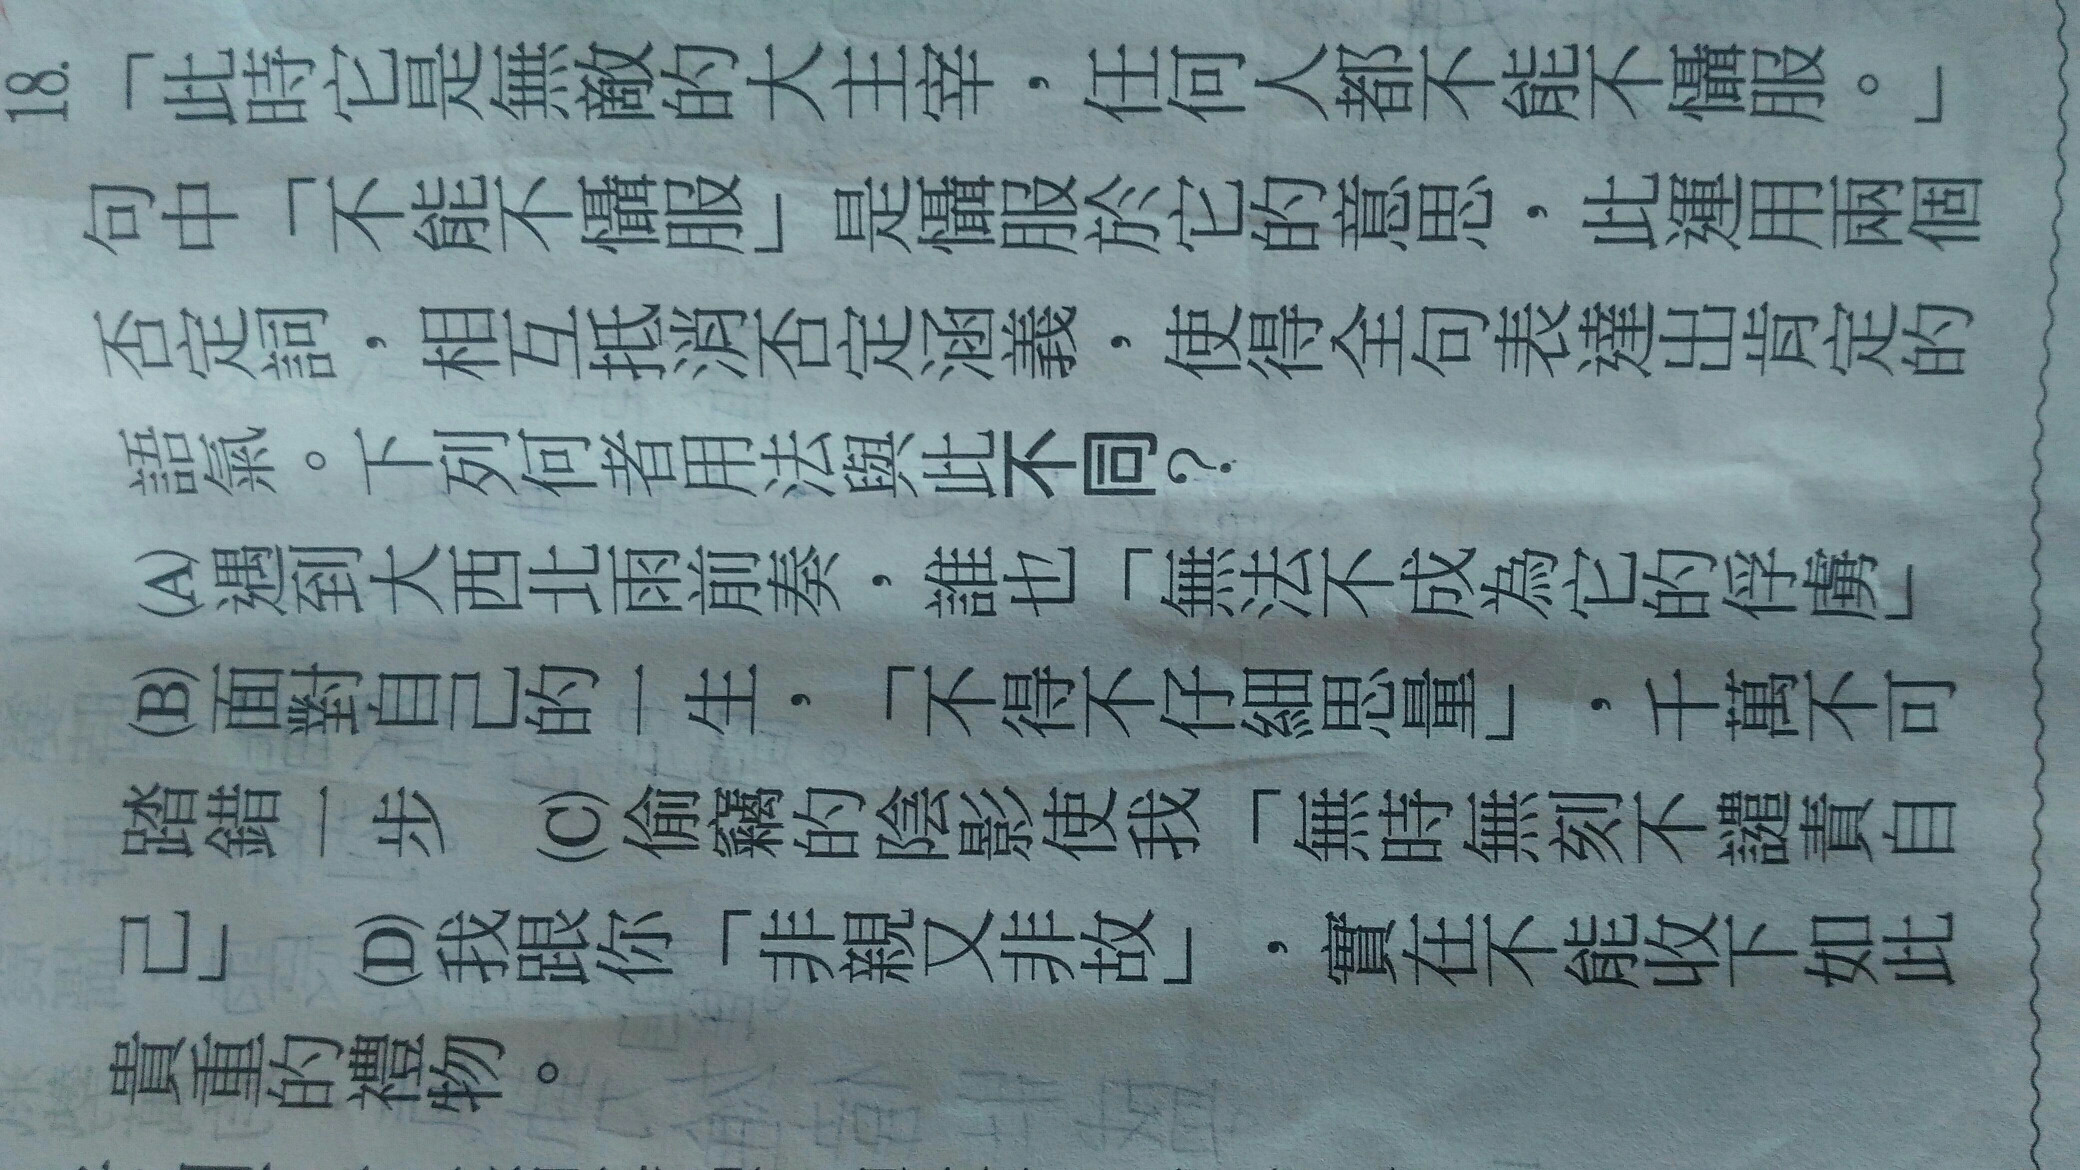 18.「此時它是無敵的大主宰，任何人都不能不懾服。」
句中「不能不懾服」是懾服於它的意思，此運用兩個
否定詞，相互抵消否定涵義，使得全句表達出肯定的
語氣。下列何者用法與此不同？
(A)遇到大西北雨前奏，誰也「無法不成為它的俘虜」
(B)面對自己的一生，「不得不仔細思量」，千萬不可
踏錯一步　(C)偷竊的陰影使我「無時無刻不譴責自
己」　(D)我跟你「非親又非故」，實在不能收下如此
貴重的禮物。